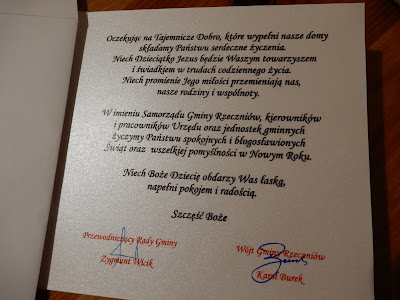 Oczekując na Tajemnicze Dobro, które wypełni nasze domy
składamy Państwu serdeczne życzenia.
Niech Dzieciątko Jezus będzie Waszym towarzyszem
i świadkiem w trudach codziennego życia.
Niech promienie Jego miłości przemieniają nas,
nasze rodziny i wspólnoty.
W imieniu Samorządu Gminy Rzeczniów, kierowników
i pracowników Urzędu oraz jednostek gminnych
życzymy Państwu spokojnych i błogosławionych
Świąt oraz wszelkiej pomyślności w Nowym Roku.
Niech Boże Dziecię obdarzy Was łaską,
napełni pokojem i radością.
Szczęść Boże
Przewodniczący Rady Gminy
Zygmunt Wicik
Wójt Gminy Rzeczniów
Karol Burek